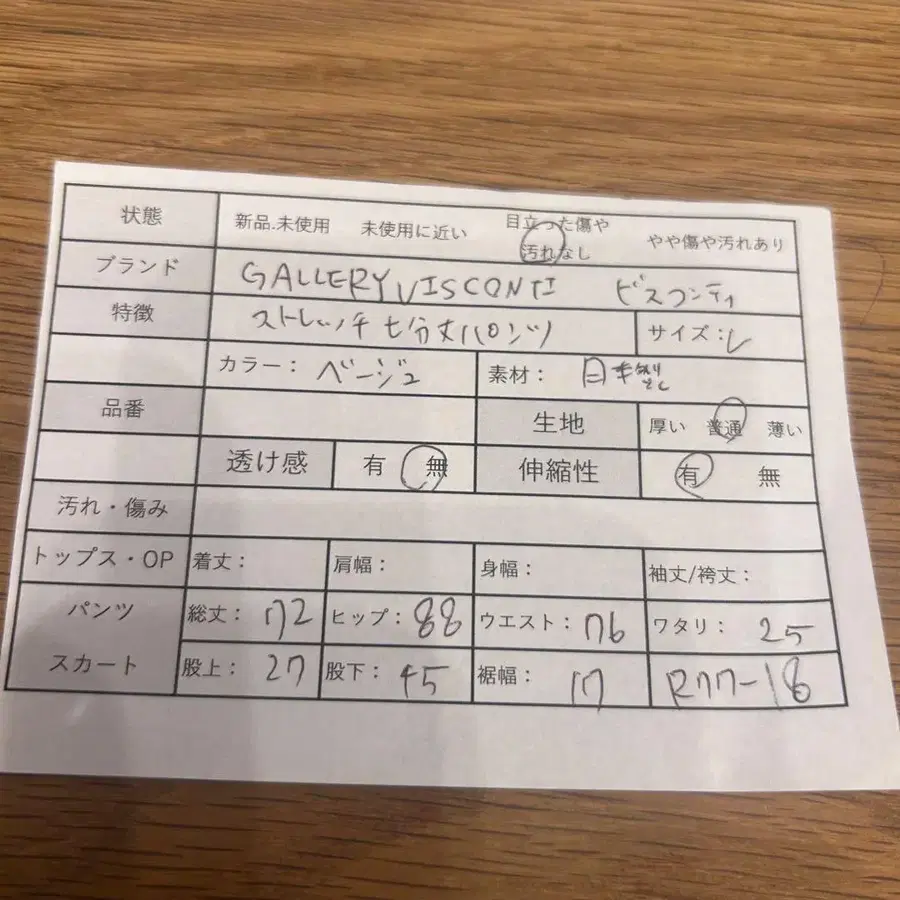 状態 新品.未使用 未使用に近い 目立った傷や汚れなし やや傷や汚れあり
ブランド GALLERY VISCONTI ビスコンティ
特徴 ストレッチ七分丈パンツ サイズ:L
カラー: ベージュ 素材:
品番 生地 厚い 普通 薄い
透け感 有 無 伸縮性 有 無
汚れ・傷み
トップス・OP 着丈: 肩幅: 身幅: 袖丈/裄丈:
パンツ 総丈: 72 ヒップ: 88 ウエスト: 76 ワタリ: 25
スカート 股上: 27 股下: 45 裾幅: 17 R77-18